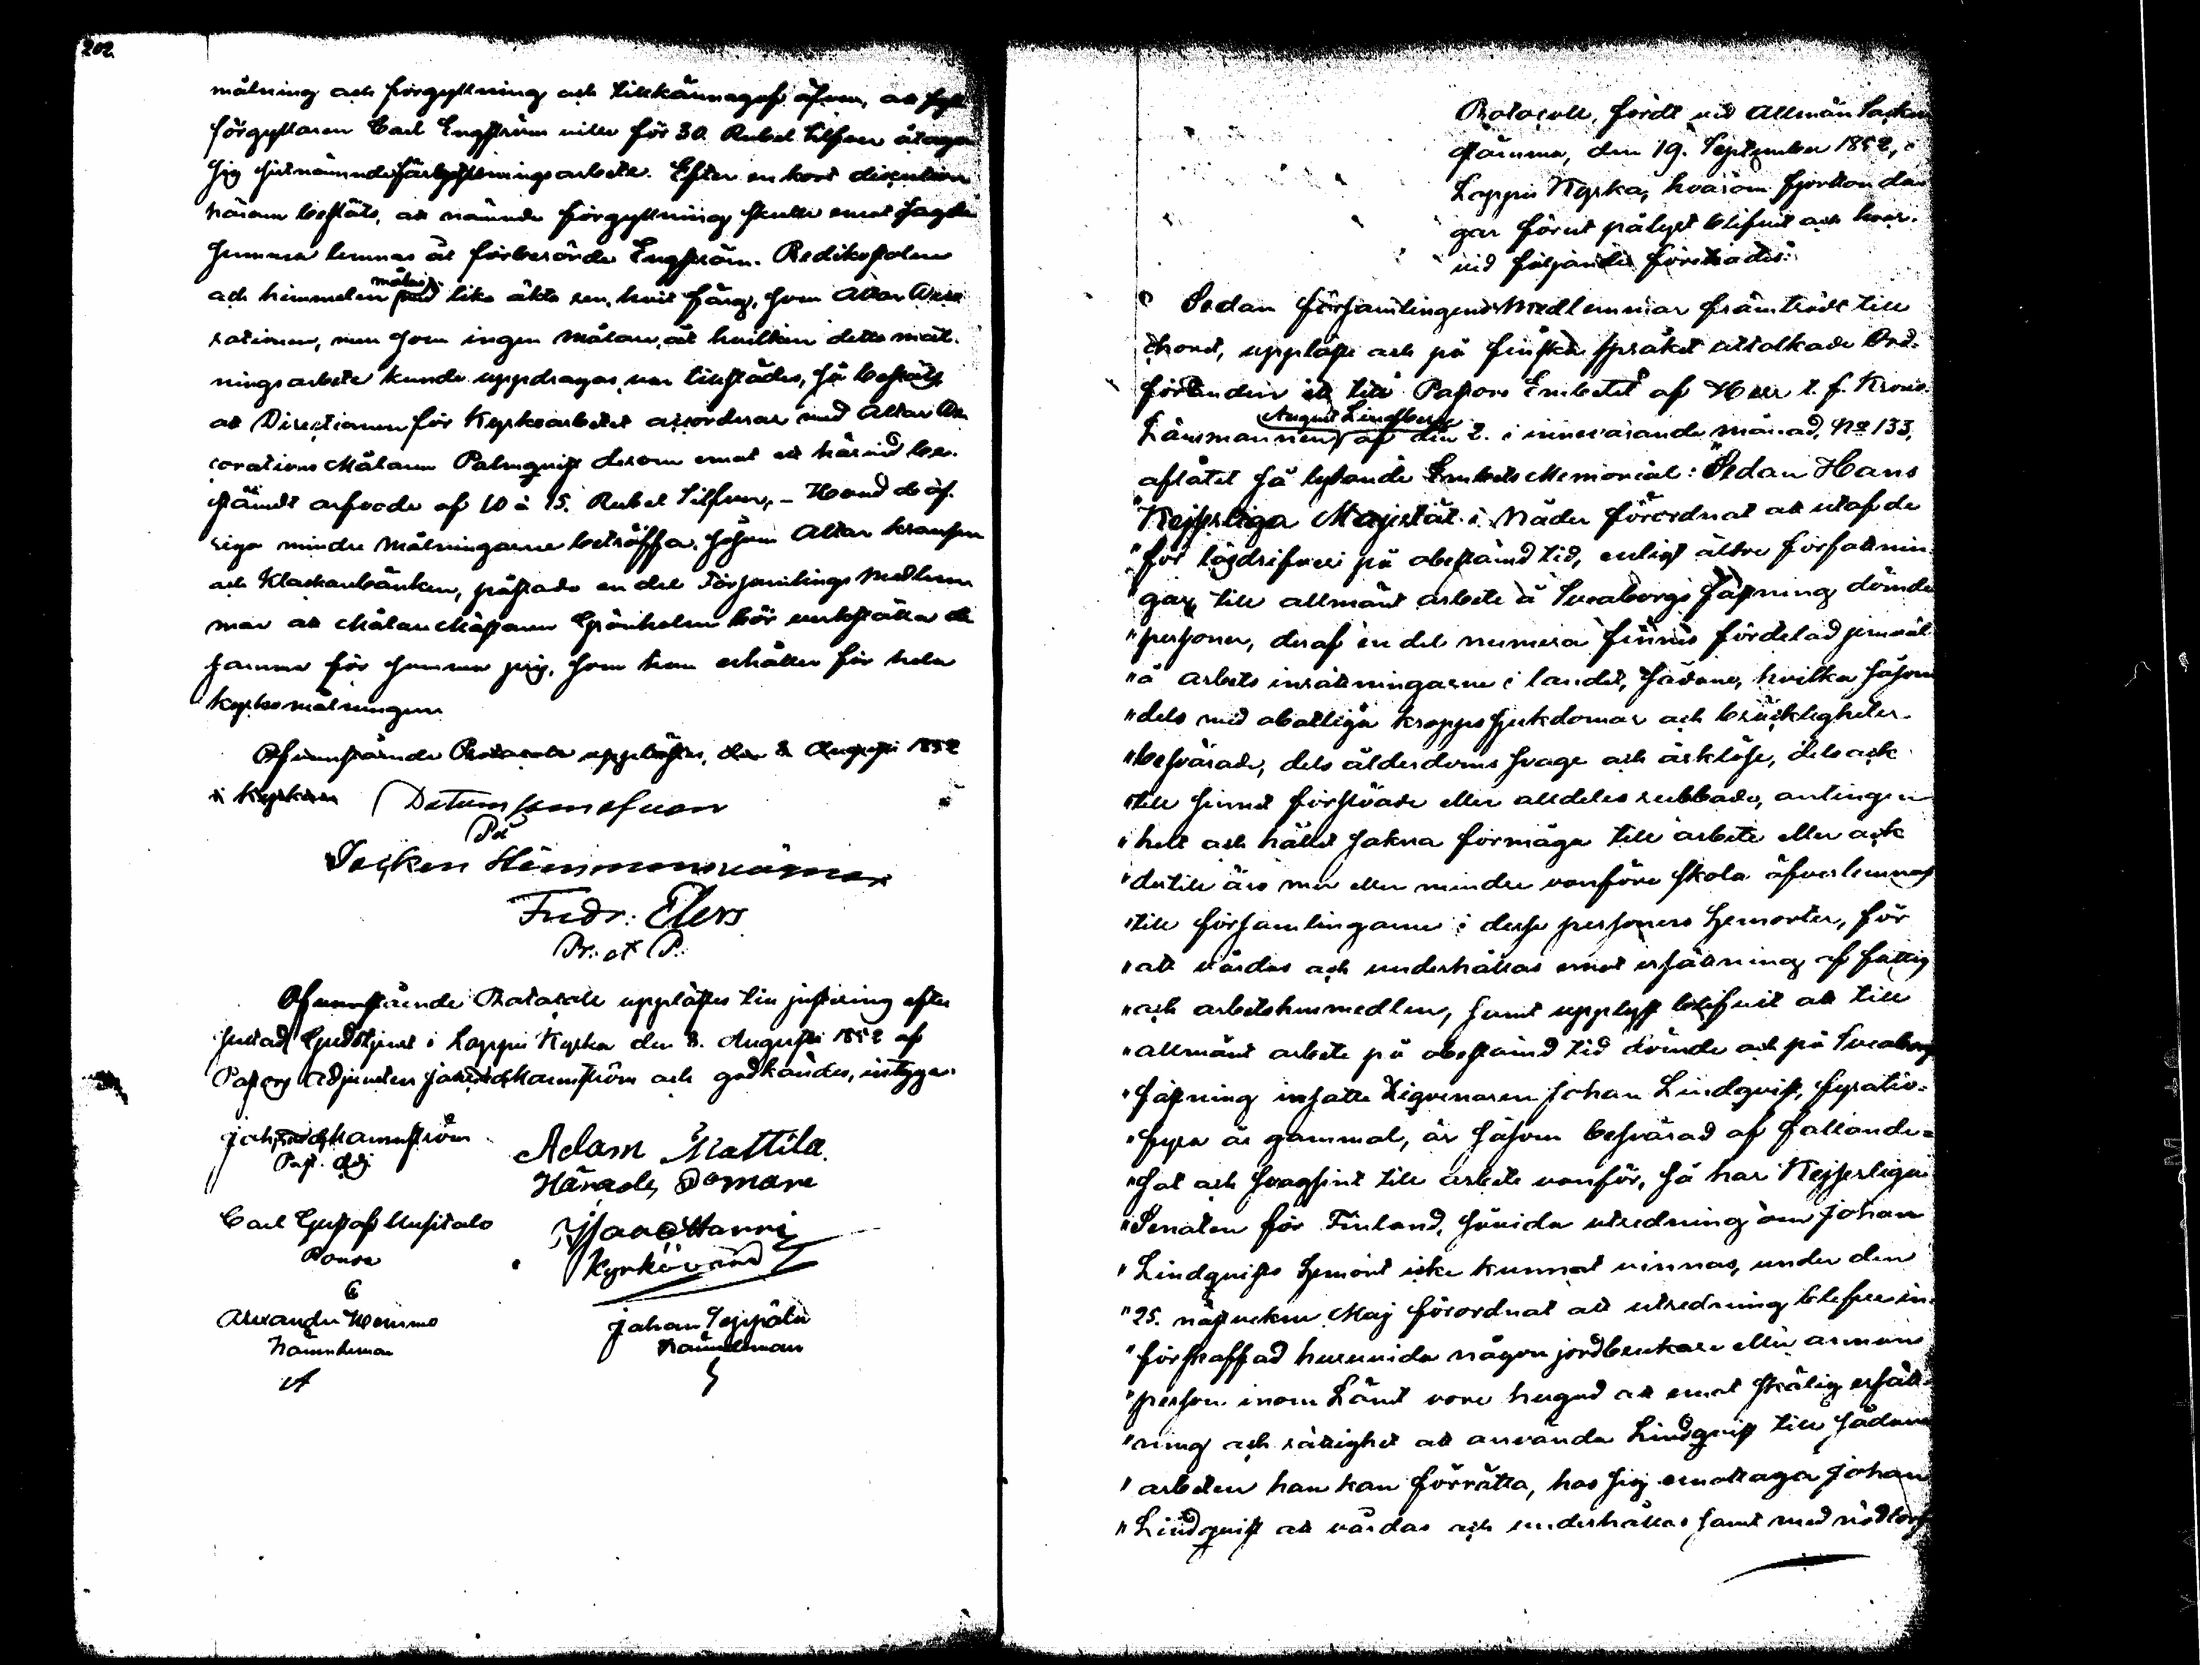 202.
målning och förgyllning och tillkännagafs äfven, att
förgyllaren Carl Engström ville för 30. Rubel Silfver åtaga
sig sistnämnde förgyllningsarbete. Efter en kort discution
härom beslöts, att nämnde förgyllning skulle emot sagde
summa lemnas åt förberörde Engström. Predikostolen
och himmelen målas med lika äkta ren, hvit färg, som Altar Deko
rationen, men som ingen målare, åt hvilken detta mål-
ningsarbete kunde uppdragas var tillstädes, så beslöts
att Directionen för Kyrkoarbetet accorderar med Altar De-
corations Målaren Palmqvist derom emot ett härvid be-
stämdt arfvode af 10 à 15. Rubel Silfver, – Hvad de öf-
riga mindre målningarne beträffa, såsom Altar kransen
och Klockarebänken, påstodo en del Församlings Medlem
mar att Målare Mästaren Grönholm bör verkställa de
samma för samma pris, som han erhåller för hela
kyrkomålningen
Ofvanstående Protocoll upplästes, den 8 Augusti 1852
i Kyrkan Datum som ofvan
På
Socken Stämmans vägnar
Fredr: Elers
Pr: et P:
Ofvanstående Protocoll upplästes till justering efter
slutad Gudstjenst i Loppis Kyrka den 8. Augusti 1852 af
Pastors Adjuncten Joh: Hannström och godkändes, intyga:
Joh: Hannström
Past. Adj
Adam Mattila
Härads Domare
Carl Gustaf Uusitalo
Bonde
Isaac Hanni
Kyrkovärd
Alexander Hemmo
Nämndeman
Johan Seppälä
Nämndeman
Protocoll, fördt vid Allmän Socken
stämma, den 19. September 1852, i
Loppis Kyrka, hvarom fjorton da
gar förut pålyst blifvit och hvar-
vid följande företrades:
Sedan församlingens Medlemmar framträdt till
Choret, upplästes och på finska språket uttolkades Ord-
föranden ett till Pastors Embetet af Herr t. f. Krono
Länsmannen August Lindberg af den 2. i innevarande månad, No 133,
aflåtet så lydande Embets Memorial: "Sedan Hans
"Kejserliga Majestät i Nåder förordnat att utaf de
"för lösdrifveri på obestämd tid, enligt äldre författnin
"gar, till allmänt arbete å Sveaborgs fästning dömde
"personer, deraf en del numera finnes fördelad jemväl
"å arbets inrättningarne i landet, sådane, hvilka såsom
"dels med obotliga kroppssjukdomar och bräckligheter
"besvärade, dels ålderdoms svage och orkeslöse, dels ock
"till sinnet förslöade eller alldeles rubbade, antingen
"helt och hållet sakna förmåga till arbete eller ock
"dertill äro mer eller mindre vanföre skola öfverlemnas
"till församlingarne i desse personers hemorter, för
"att vårdas och underhållas emot ersättning af fattig
"och arbetshusmedlen, samt upplyst blifvit att till
"allmänt arbete på obestämd tid dömde och på Sveaborgs
"fästning insatte Zigenaren Johan Lindqvist, fyratio-
"fyra år gammal, är såsom besvärad af fallande-
"sot och svagsint till arbete vanför, så har Kejserliga
"Senaten för Finland, såvida utredning om Johan
"Lindqvists hemort icke kunnat vinnas, under den
"25. näst veken Maj förordnat att utredning blefve in-
"förskaffad huruvida någon jordbrukare eller annan
"person inom Länet vore hugad att emot skälig ersätt-
"ning och rättighet att använda Lindqvist till sådana
"arbeten han kan förrätta, hos sig emottaga Johan
"Lindqvist att vårdas och underhållas samt med nödtorf